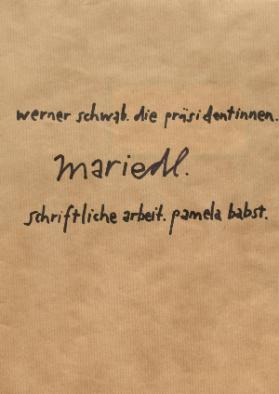 werner schwab. die präsidentinnen.
mariedl.
schriftliche arbeit. pamela babst.